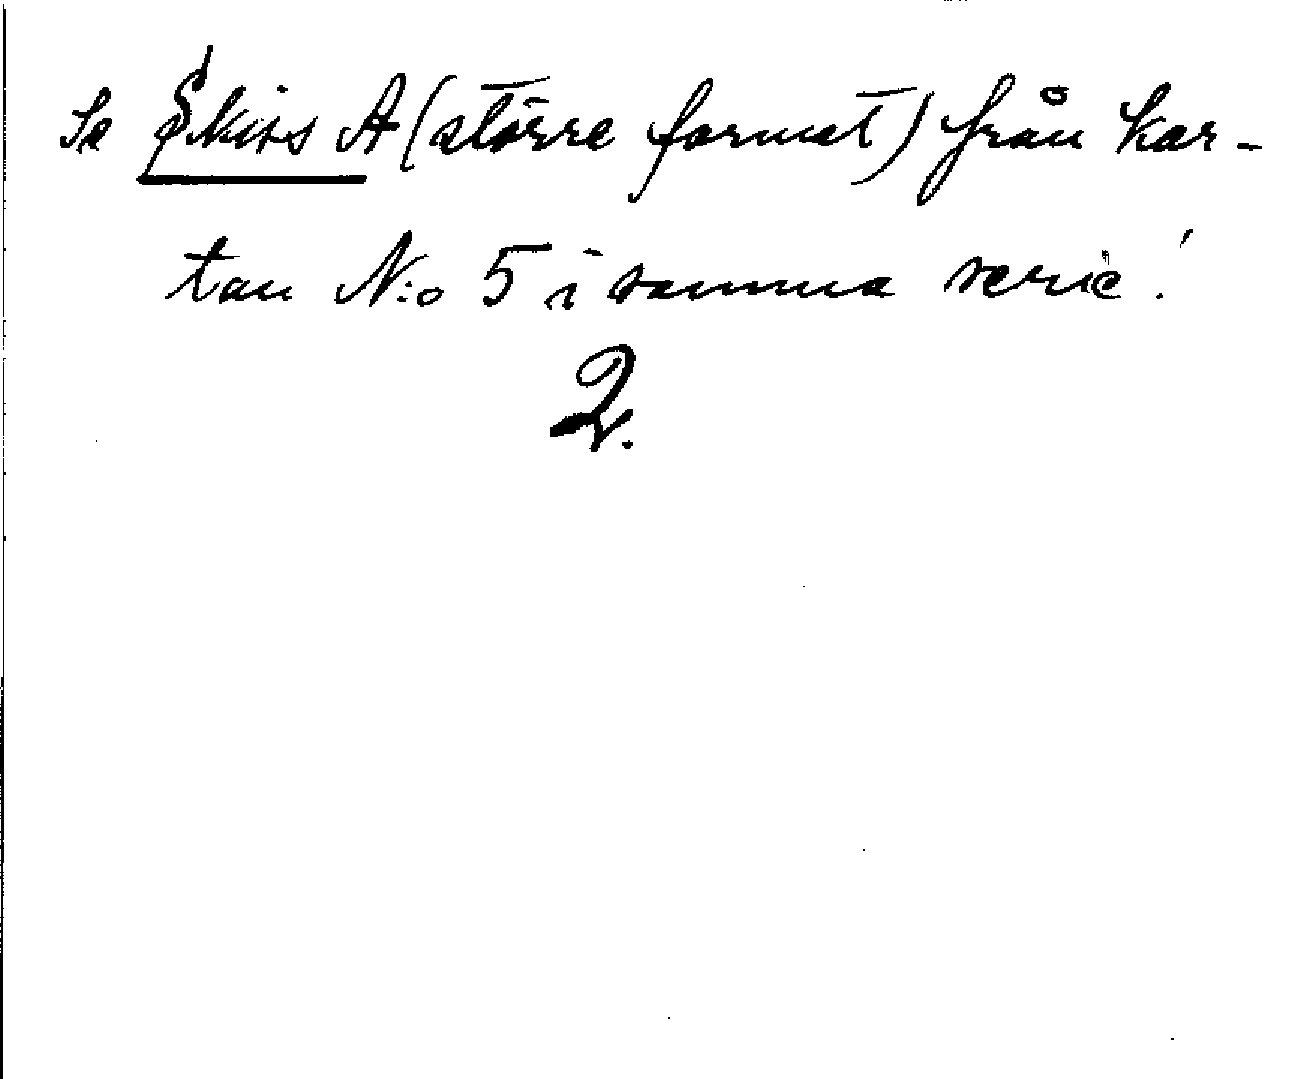 Se Skiss A (större format) från kar-
tan N:o 5 i samma serie!
2.